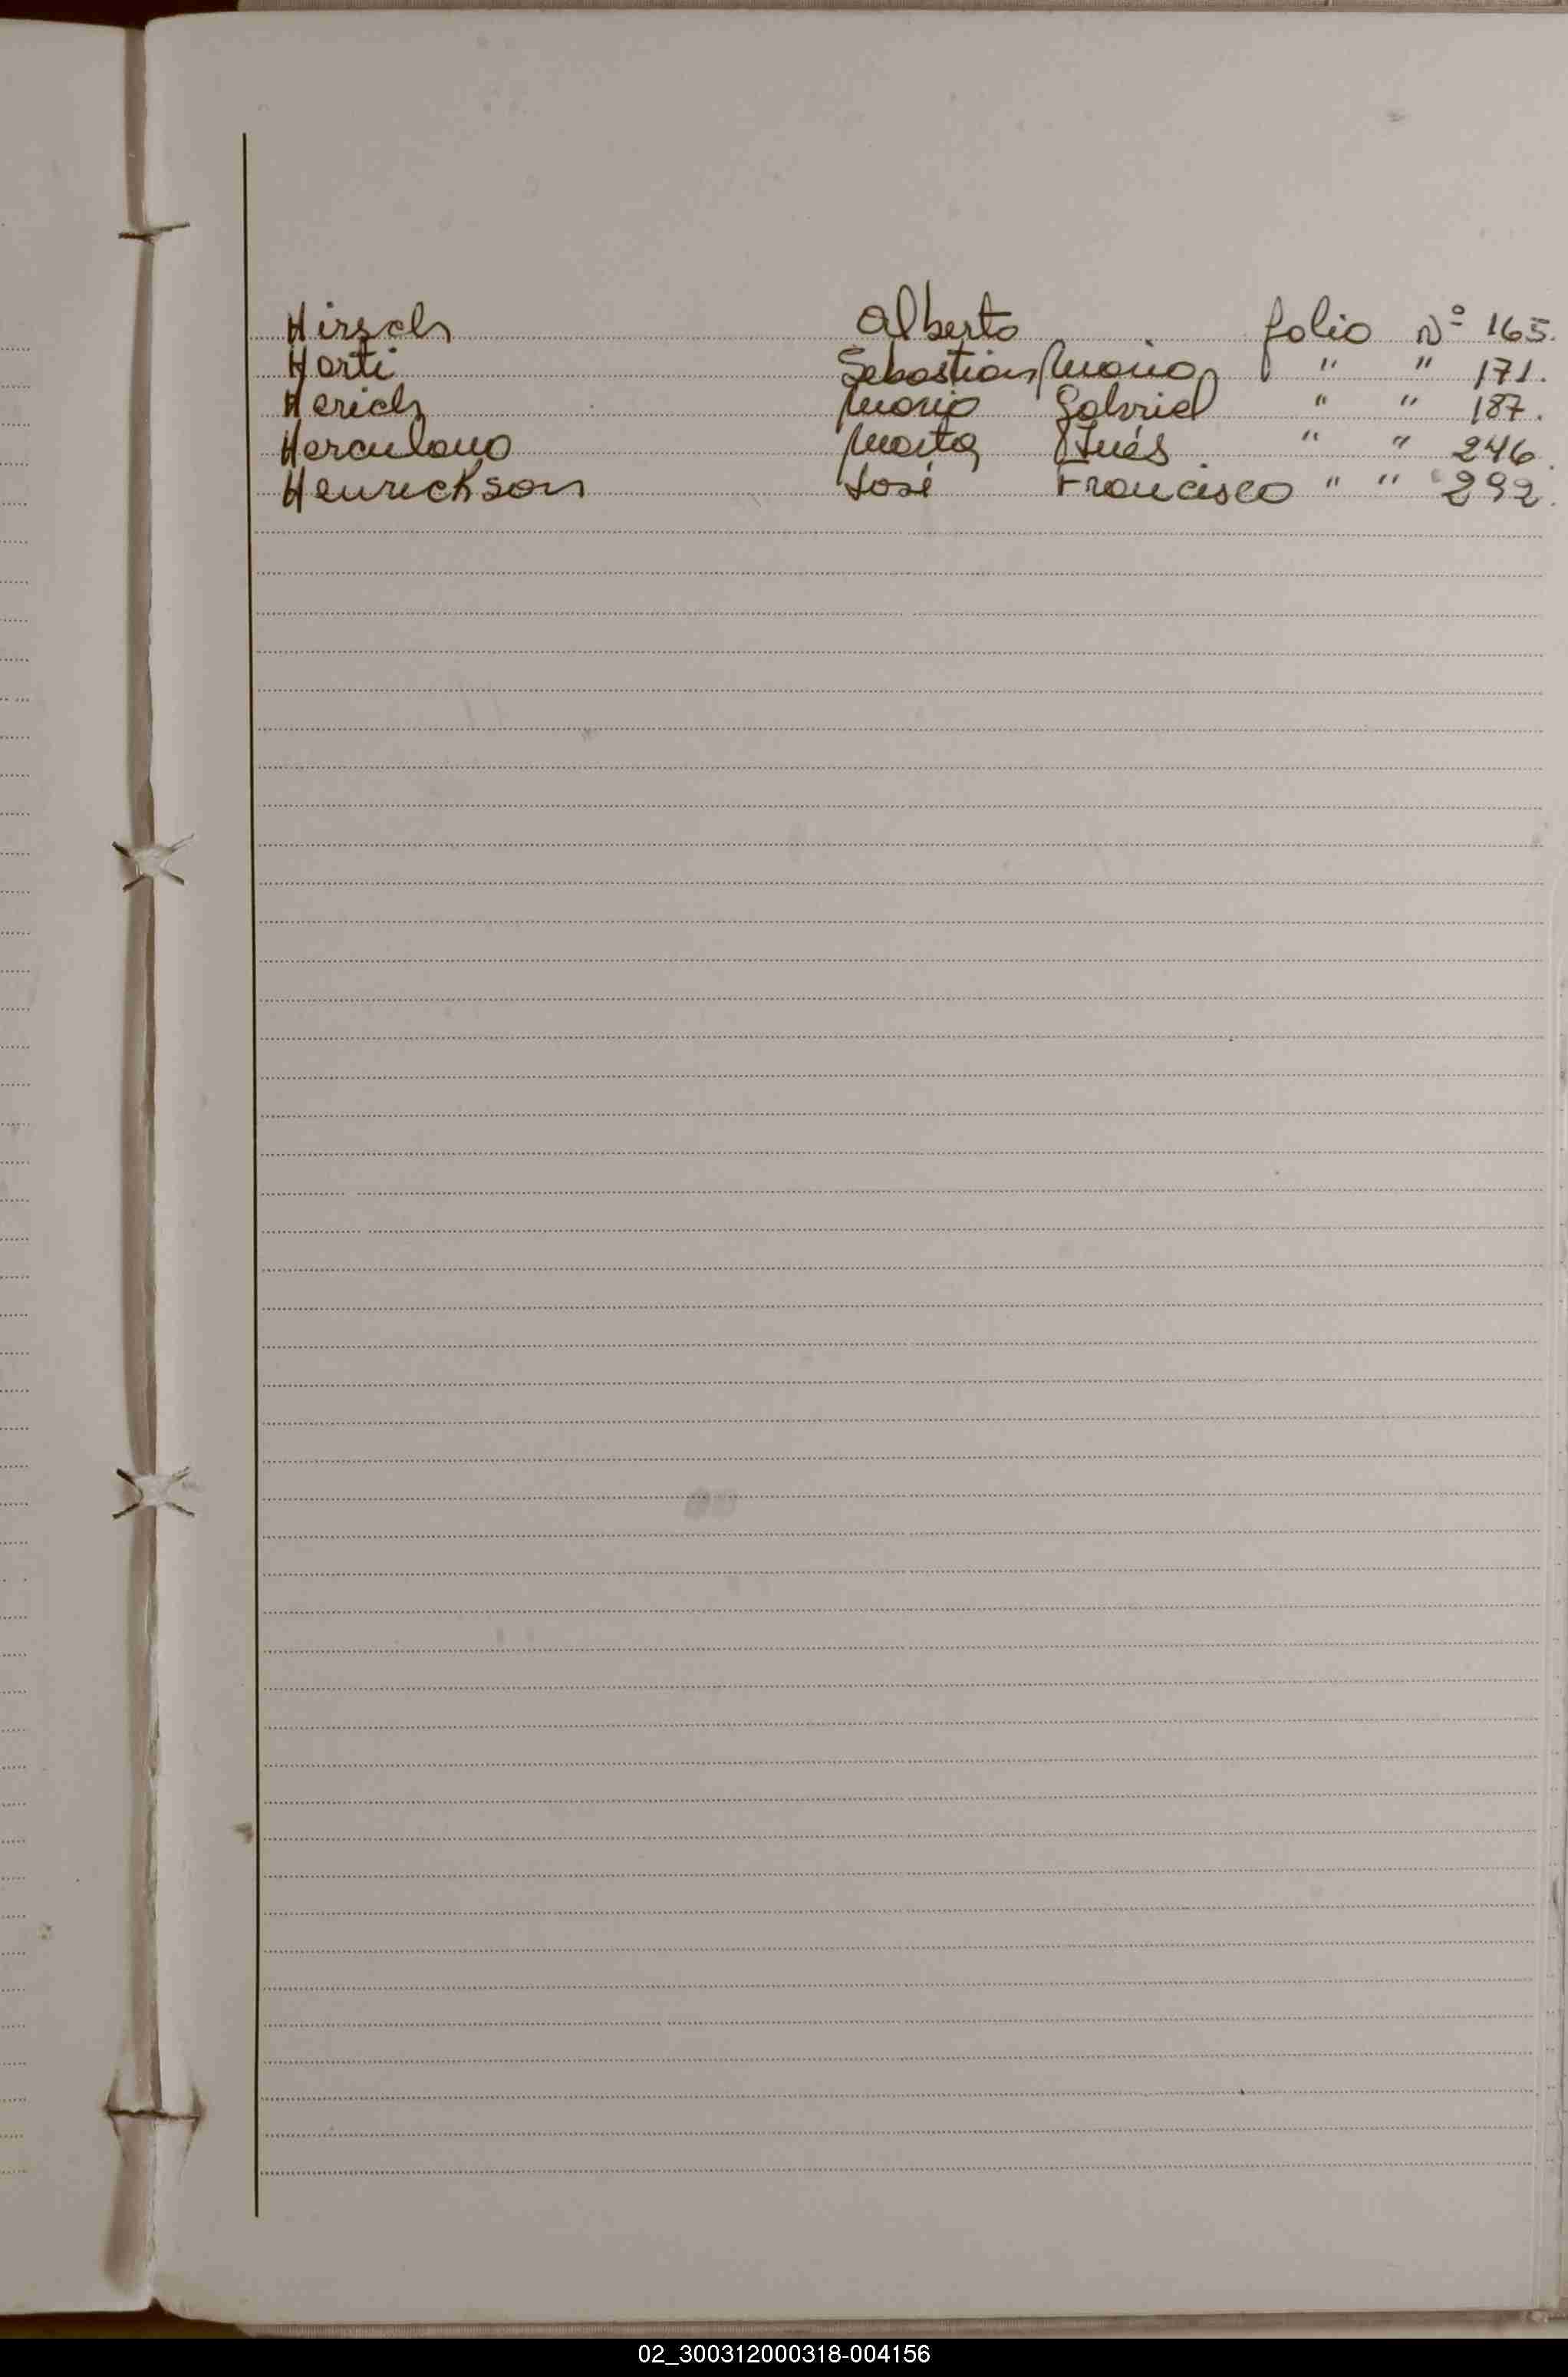 Hirsch Alberto folio Nº 165.
Horti Sebastian Mario " " 171.
Herich Mario Gabriel " " 187.
Herculano Marta Inés " " 246.
Henrickson José Francisco " " 292.
02_300312000318-004156